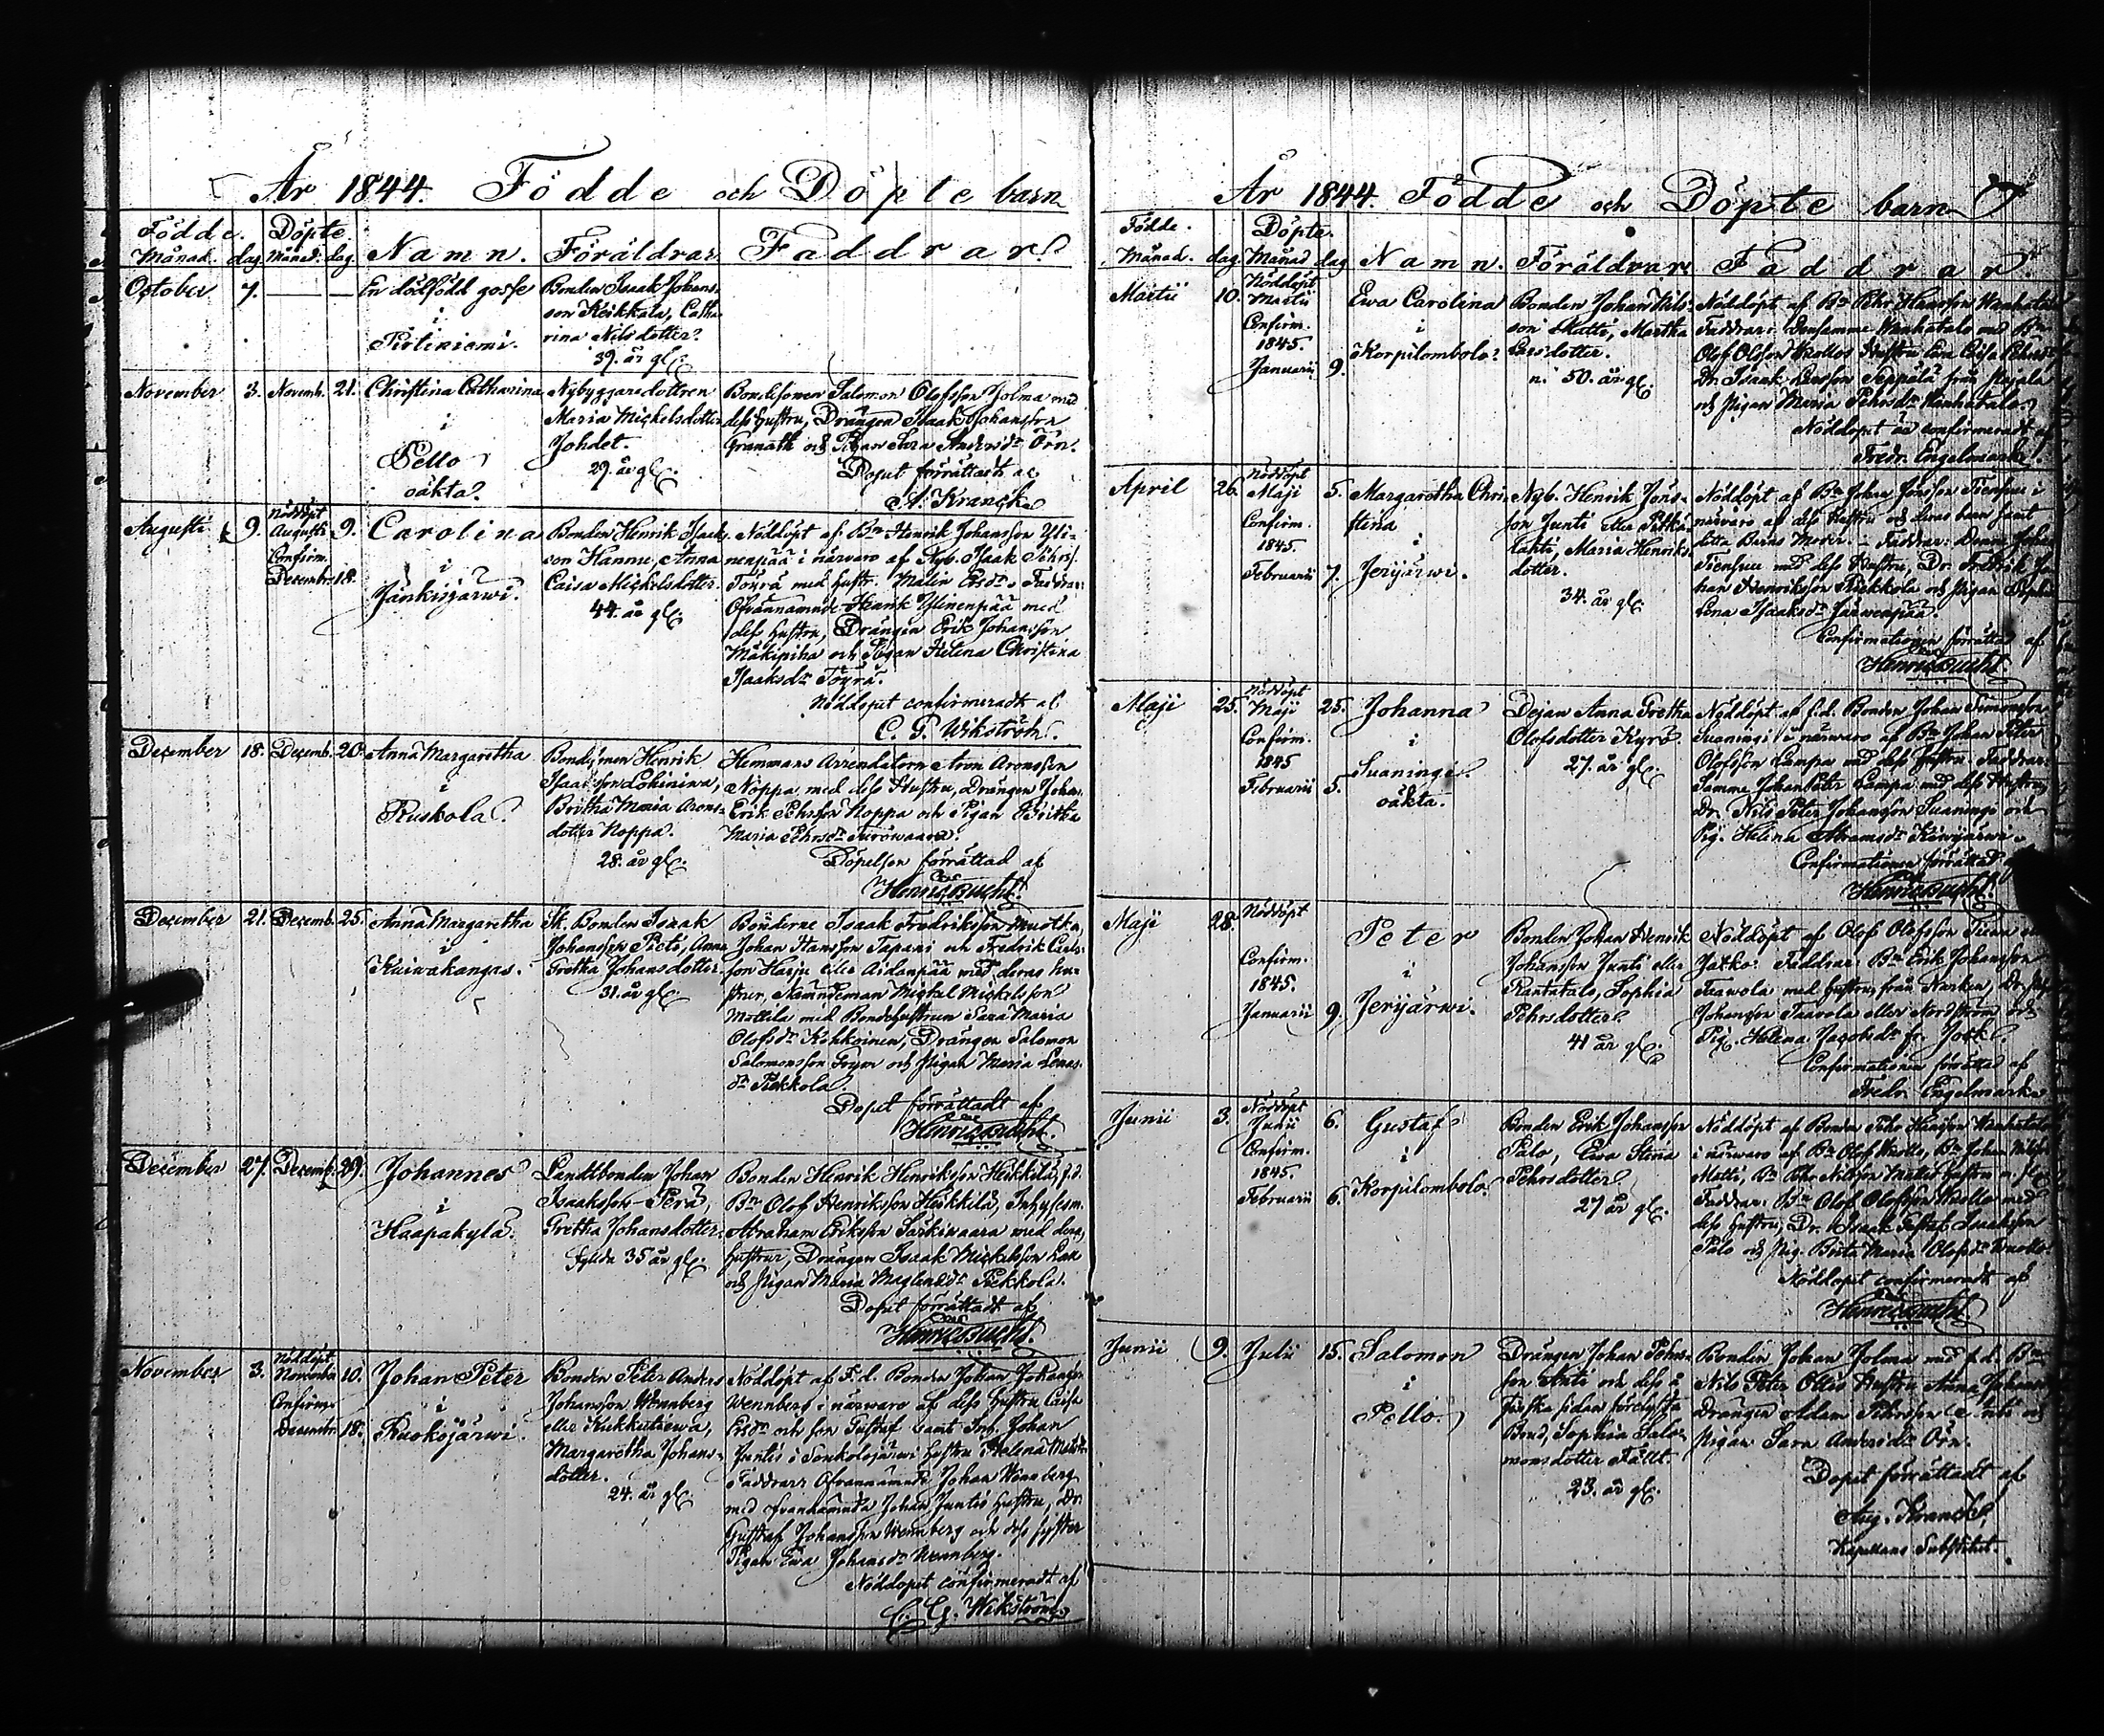 År 1844. Födde och Döpte barn
Födde. Döpte. Namn. Föräldrar. Faddrar.
Månad. dag. Månad. dag.
October 7. — —
En dödfödd gosse
i
Bonden Isaak Johans-
son Keikkala, Catha
rina Nilsdotter.
39. år gl.
November 3. Novemb. 21.
Christina Catharina
i
Pello
oäkta.
Nybyggaredottren
Maria Mickelsdotter
Johdet.
29. år gl.
Bondesonen Salomon Olofsson Jolma med
dess hustru, Drängen Isaak Johansson
Granath och Pigan Andersdr Örn.
Dopet förrättadt af
A. Kranck
Augusti 9.
Nöddöpt
Augusti 9.
Confirm.
Decembr. 18.
Carolina
i
Jänkisjärwi.
Bonden Henrik Isacks
son Hannu, Anna
Caisa Mickelsdotter.
44. år gl.
Nöddöpt af Bn Henrik Johansson Yli-
nenpää i närwaro af Nyb. Isaak
Töyrä med hustr. Malin Ersdr. Faddrar:
Ofvannämnde Henrik Ylinenpää med
dess hustru, Drängen Erik Johansson
Mäkipiha och Pigan Helena Christina
Isaaksdr Töyrä.
Nöddopet confirmeradt af
C. G. Wikström.
December 18. Decemb. 20.
Anna Margaretha
i
Ruskola.
Henrik
Isaaksson Lohiniwa,
Britha Maria Arons-
dotter Noppa.
28. år gl.
Hemmans Arrendatorn Aron Aronsson
Noppa med dess Hustru, Drängen Johan
Erik Pehrsson Noppa och Pigan Britha
Maria Pehrsdr
Döpelsen förrättad af
Henric Bucht.
December 21. Decemb. 25.
Anna Margaretha
i
Kuiwakangas.
Bonden Isaak
Johansson Anna
Gretha Johansdotter.
31. år gl.
Bönderne Isaak Fredriksson Muotka,
Johan Hansson Tapani och Fredrik Carls-
son Harju eller Aidanpää med deras hu-
strur, Nämndeman Michel Mickelsson
Mottila med Bondehustrun Sara Maria
Olofsdr Drängen Salomon
Salomonsson och Pigan Maria
dr Pekkola.
Dopet förrättadt af
Henric Bucht.
December 27. Decemb. 29.
Johannes
i
Haapakylä.
Landtbonden Johan
Isaaksson Perä,
Gretha Johansdotter.
fyllda 35 år gl.
Bonden Henrik Henriksson Heikkilä, f.d.
Bn Olof Henriksson Heikkilä, Inhysesm.
Abraham Eriksson Särkiwaara med deras
hustrur, Drängen Isaak Mickelsson
och Pigan Maria Pekkola.
Dopet förrättadt af
Henric Bucht.
November 3.
Nöddöpt
Novembr 10.
Confirm.
Decembr. 18.
Johan Peter
i
Ruokojärwi.
Bonden Peter Anders
Johansson Wennberg
eller
Margaretha Johans-
dotter.
24. år gl.
Nöddöpt af F.d. Bonden Johan Johansson
Wennberg i närwaro af dess hustru Caisa
Ersdr och son Gustaf samt Inh. Johan
Juntis i hustru Helena
Faddrar: Ofvannämnde Johan Wennberg
med Johan Juntis hustru, Dr.
Gustaf Johansson Wennberg och dess syster
Pigan Ewa Johansdr Wennberg.
Nöddopet confirmeradt af
C. G. Wikström.
År 1844. Födde och Döpte barn
Födde. Döpte.
Månad. dag Månad dag Namn. Föräldrar. Faddrar.
Martii 10.
Nöddöpt
Martii
Confirm.
1845.
Januarii 9.
Ewa Carolina
i
Korpilombolo.
Bonden Johan Nils-
son Matti, Martha
Larsdotter.
50. år gl.
Nöddöpt af Bn Pehr Hansson Wanhatalo
Faddrar: Densamme Wanhatalo med Bn
Olof Olofson Hustru Ewa Caisa
Dr. Isaak Larsson Seppälä från Pajala
och Pigan Maria Pehrsdr Wanhatalo.
Nöddopet är confirmeradt af
Fredr. Engelmark.
April 26.
Nöddöpt
Maji 5.
Confirm.
1845.
Februarii 7.
Margaretha Chri-
stina
i
Jerijärwi.
Nyb. Henrik Jöns-
son Junti eller Pitkä-
lahti, Maria Henriks-
dotter.
34. år gl.
Nöddöpt af Bn Johan Jönsson i
närwaro af dess Hustru och deras barn samt
detta Barns Moder. Faddrar:
med dess Hustru, Dr. Fredrik Jo
han Henriksson och Pigan
Lena Isaaksdr
Confirmationen förrättad af
Henric Bucht
Maji 25.
Nöddöpt
Maji 25.
Confirm.
1845
Februarii 5.
Johanna
i
Suaningi
oäkta.
Dejan Anna Gretha
Olofsdotter Kyrö.
27. år gl.
Nöddöpt af f.d. Bonden Johan Simonsson
Suaningi i närwaro af Bn Johan Peter
Olofsson Lampa med dess hustru. Faddrar:
Samme Johan Peter Lampa med dess Hustru,
Dr. Nils Peter Johansson Suaningi och
Pig. Helena Abramsdr
Confirmationen förrättad
Henric Bucht.
Maji 28.
Nöddöpt
Confirm.
1845.
Januarii 9.
Peter
i
Jerijärwi.
Bonden Johan Henrik
Johansson Junti eller
Rantatalo, Sophia
Pehrsdotter
41 år gl.
Nöddöpt af Olof Olofsson
Faddrar: Bn Erik Johansson
Taawola med hustru från Narken, Dr.
Johansson Taavola eller Nordström och
Pig. Helena Jacobsdr
Confirmationen förrättad af
Fredr. Engelmark
Junii 3.
Nöddöpt
Junii 6.
Confirm.
1845.
Februarii 6.
Gustaf
i
Korpilombolo.
Bonden Erik Johansson
Palo, Ewa Stina
Pehrsdotter
27 år gl.
Nöddöpt af Bonden Pehr Hansson Wanhatalo
i närwaro af Bn Olof Bn Johan Nilsson
Matti, Bn Pehr Nilsson Mattis hustru m. fl.
Faddrar: Bn Olof Olofsson med
dess hustru, Dr. Isaak Gustaf Isaaksson
Palo och Pig. Brita Maria Olofsdr
Nöddopet confirmeradt af
Henric Bucht
Junii 9. Julii 15.
Salomon
i
Pello.
Drängen Johan Pehrs-
son Anti och dess å
Finska sidan
Brud, Sophia Salo-
monsdotter Fält.
23. år gl.
Bonden Johan Jolma med f.d. Bn
Nils Peter Ollis Hustru Anna
Drängen Adam Pehrsson Anti och
Pigan Sara Andersdr Örn.
Dopet förrättadt af
Aug. Kranck,
Kapellans Substitut.